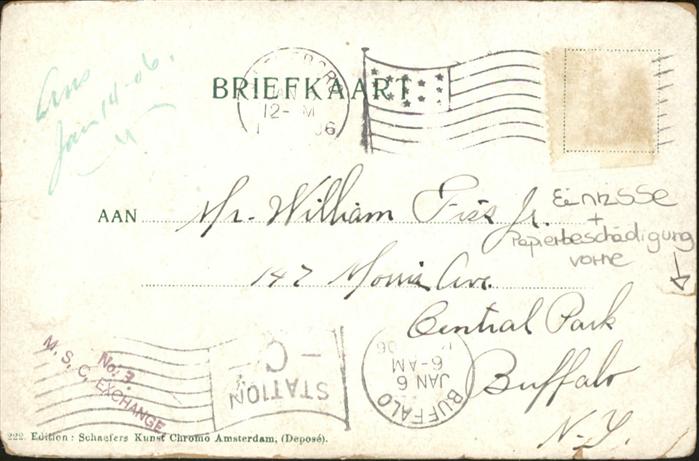 Ans
Jan 14-06.
BRIEFKAART
12- M
06
AAN
Mr. William Fiss Jr.
147 Morris Ave.
Central Park
Buffalo
N-Y.
Einrisse
+
Papierbeschädigung
vorne
No. 3.
M. S. C. EXCHANGE.
STATION
C
BUFFALO
JAN 6
6-AM
06
222. Edition: Schaefers Kunst Chromo Amsterdam, (Deposé).